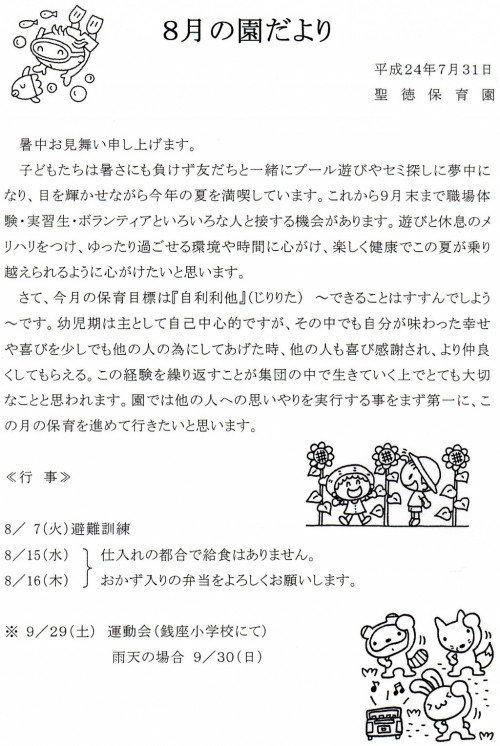 8月の園だより
平成24年7月31日
聖徳保育園
暑中お見舞い申し上げます。
子どもたちは暑さにも負けず友だちと一緒にプール遊びやセミ探しに夢中に
なり、目を輝かせながら今年の夏を満喫しています。これから9月末まで職場体
験・実習生・ボランティアといろいろな人と接する機会があります。遊びと休息のメ
リハリをつけ、ゆったり過ごせる環境や時間に心がけ、楽しく健康でこの夏が乗り
越えられるように心がけたいと思います。
さて、今月の保育目標は『自利利他』(じりりた) ～できることはすすんでしよう
～です。幼児期は主として自己中心的ですが、その中でも自分が味わった幸せ
や喜びを少しでも他の人の為にしてあげた時、他の人も喜び感謝され、より仲良
くしてもらえる。この経験を繰り返すことが集団の中で生きていく上でとても大切
なことと思われます。園では他の人への思いやりを実行する事をまず第一に、こ
の月の保育を進めて行きたいと思います。
≪行 事≫
8／ 7(火)避難訓練
8／15(水) 仕入れの都合で給食はありません。
8／16(木) おかず入りの弁当をよろしくお願いします。
※ 9／29(土) 運動会(銭座小学校にて)
雨天の場合 9／30(日)